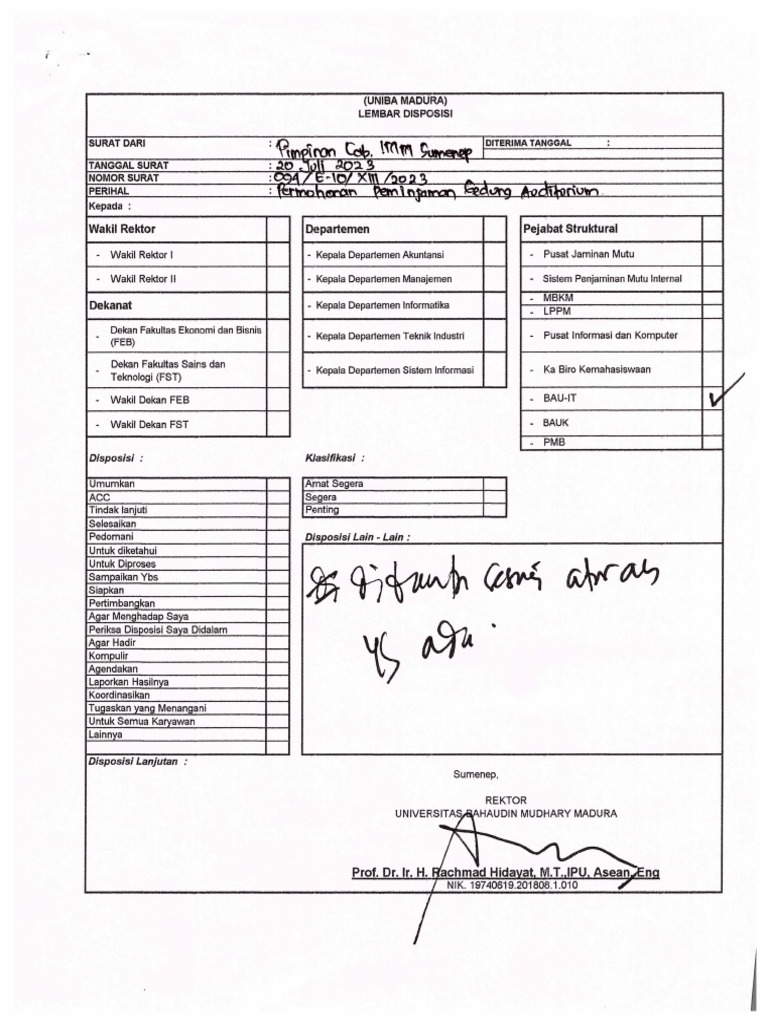 (UNIBA MADURA)
LEMBAR DISPOSISI
SURAT DARI : Pimpinan Cab. IMM Sumenep DITERIMA TANGGAL :
TANGGAL SURAT : 20 Juli 2023
NOMOR SURAT : 094/E-10/XIII/2023
PERIHAL : Permohonan Peminjaman Gedung Auditorium
Kepada :
Wakil Rektor
- Wakil Rektor I
- Wakil Rektor II
Dekanat
- Dekan Fakultas Ekonomi dan Bisnis
(FEB)
- Dekan Fakultas Sains dan
Teknologi (FST)
- Wakil Dekan FEB
- Wakil Dekan FST
Departemen
- Kepala Departemen Akuntansi
- Kepala Departemen Manajemen
- Kepala Departemen Informatika
- Kepala Departemen Teknik Industri
- Kepala Departemen Sistem Informasi
Pejabat Struktural
- Pusat Jaminan Mutu
- Sistem Penjaminan Mutu Internal
- MBKM
- LPPM
- Pusat Informasi dan Komputer
- Ka Biro Kemahasiswaan
- BAU-IT
- BAUK
- PMB
Disposisi :
Umumkan
ACC
Tindak lanjuti
Selesaikan
Pedomani
Untuk diketahui
Untuk Diproses
Sampaikan Ybs
Siapkan
Pertimbangkan
Agar Menghadap Saya
Periksa Disposisi Saya Didalam
Agar Hadir
Kompulir
Agendakan
Laporkan Hasilnya
Koordinasikan
Tugaskan yang Menangani
Untuk Semua Karyawan
Lainnya
Klasifikasi :
Amat Segera
Segera
Penting
Disposisi Lain - Lain :
sesuai aturan
yg ada.
Disposisi Lanjutan :
Sumenep,
REKTOR
UNIVERSITAS BAHAUDIN MUDHARY MADURA
Prof. Dr. Ir. H. Rachmad Hidayat, M.T.,IPU, Asean, Eng
NIK. 19740619.201808.1.010